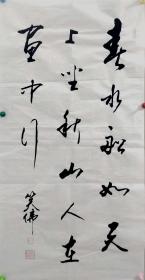 春水船如天
上坐秋山人在
画中行
笑佛